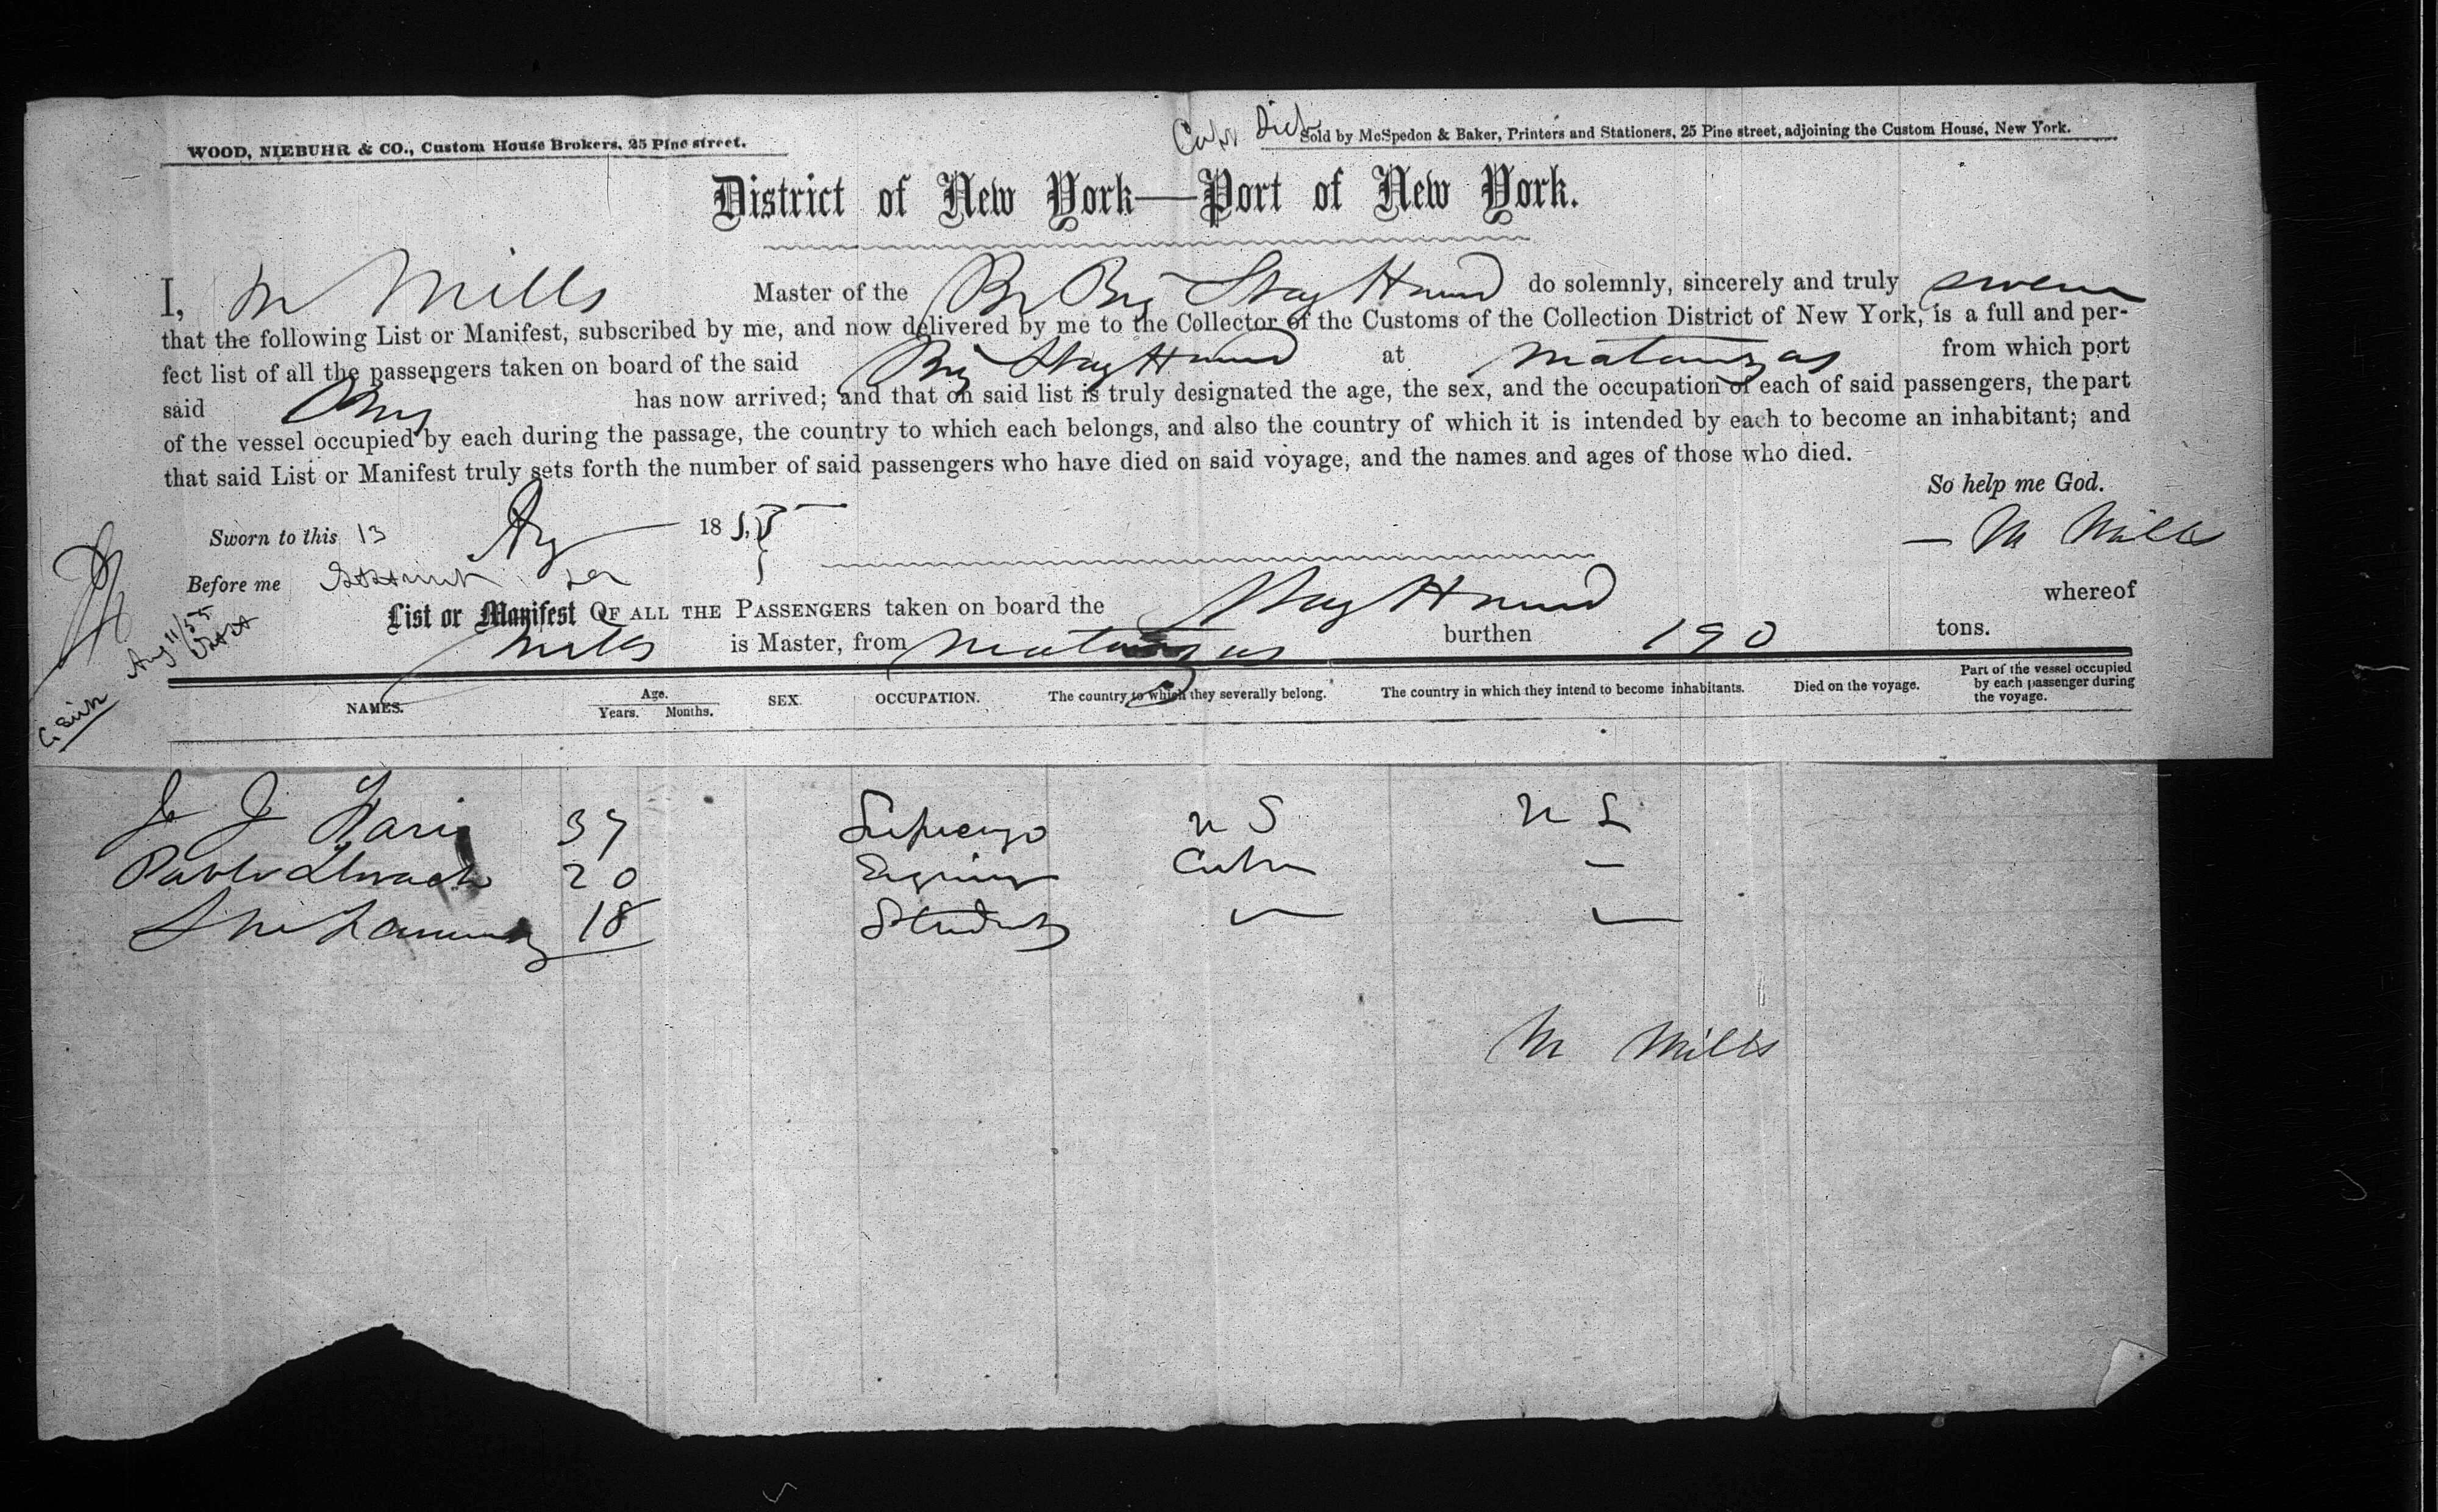 WOOD, NIEBUHR & CO., Custom House Brokers, 25 Pine street.
Sold by McSpedon & Baker, Printers and Stationers, 25 Pine street, adjoining the Custom House, New York.
District of New York—Port of New York.
I, M Mills Master of the Br Brig Stag Hound do solemnly, sincerely and truly swear
that the following List or Manifest, subscribed by me, and now delivered by me to the Collector of the Customs of the Collection District of New York, is a full and per-
fect list of all the passengers taken on board of the said Brig Stag Hound at Matanzas from which port
said Brig has now arrived; and that on said list is truly designated the age, the sex, and the occupation of each of said passengers, the part
of the vessel occupied by each during the passage, the country to which each belongs, and also the country of which it is intended by each to become an inhabitant; and
that said List or Manifest truly sets forth the number of said passengers who have died on said voyage, and the names and ages of those who died.
So help me God.
Sworn to this 13 Aug 1855 M Mills
Before me
Aug 11/55
List or Manifest OF ALL THE PASSENGERS taken on board the Stag Hound whereof
Mills is Master, from Matanzas burthen 190 tons.
NAMES. Age. Years. Months. SEX. OCCUPATION. The country to which they severally belong. The country in which they intend to become inhabitants. Died on the voyage. Part of the vessel occupied by each passenger during the voyage.
J 37 U S U S
Pablo 20 Engineer Cuba —
18 Student — —
M Mills